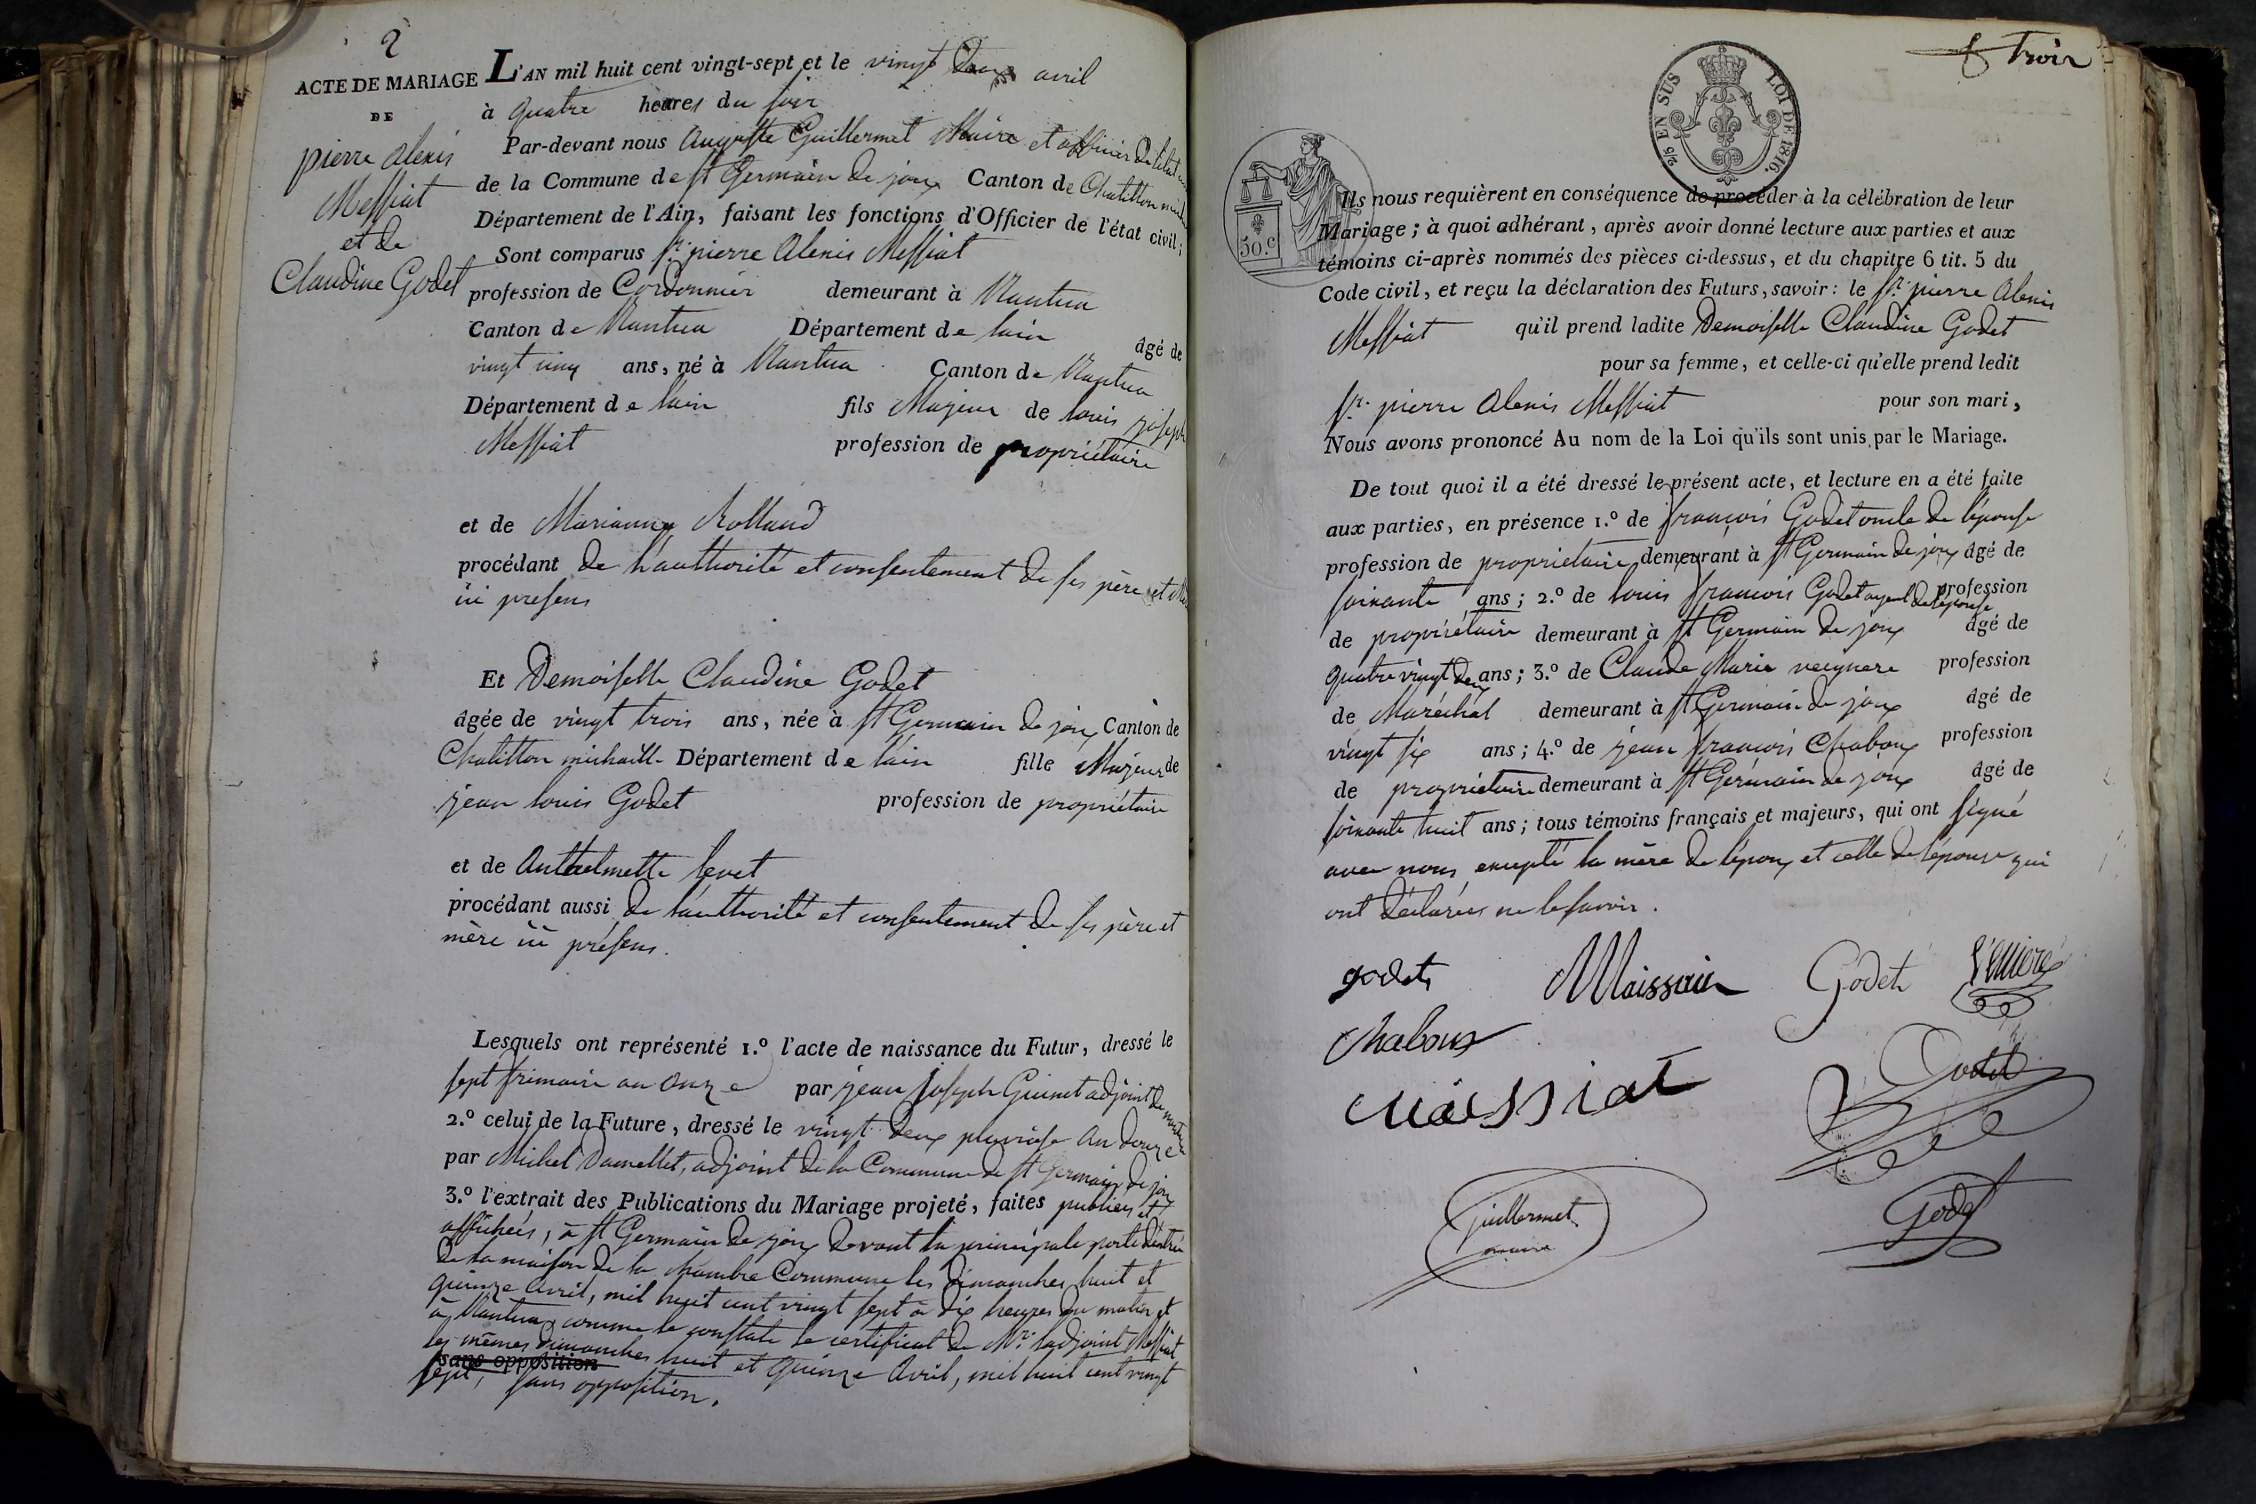 2
ACTE DE MARIAGE
DE
pierre alexis
Messiat
et de
Claudine Godet
L'AN mil huit cent vingt-sept et le vingt deux avril
à quatre heures du soir
Par-devant nous Auguste Guillermet Maire et officier de l'état
de la Commune de st Germain de joux Canton de Chatillon
Département de l'Ain, faisant les fonctions d'Officier de l'état civil;
Sont comparus sr. pierre Alexis Messiat
profession de Cordonnier demeurant à Nantua
Canton de Nantua Département de lain âgé de
vingt cinq ans, né à Nantua Canton de Nantua
Département de lain fils Majeur de louis joseph
Messiat profession de propriétaire
et de Marianne Rolland
procédant de l'authorité et consentement de ses père et
ici presens
Et Demoiselle Claudine Godet
âgée de vingt trois ans, née à st Germain de joux Canton de
Chatillon michaille Département de lain fille Majeur de
jean louis Godet profession de propriétaire
et de Anthelmette levet
procédant aussi de l'authorité et consentement de ses père et
mère ici présens.
Lesquels ont représenté 1.º l'acte de naissance du Futur, dressé le
sept frimaire an onze par jean joseph Guinet adjoint de
2.º celui de la Future, dressé le vingt deux pluviose an douze
par Michel Damellet, adjoint de la Commune de st Germain de joux
3.º l'extrait des Publications du Mariage projeté, faites publiées et
affichées, à st Germain de joux devant la principale porte d'entrée
de la maison de la chambre Commune les dimanches huit et
quinze avril, mil huit cent vingt sept à dix heures du matin et
à Nantua comme le constate le certificat de Mr. ladjoint Messiat
les mêmes dimanches huit et quinze Avril, mil huit cent vingt
sans opposition
sept, sans opposition.
f Trois
2/5 EN SUS LOI DE 1816.
50.c
Ils nous requièrent en conséquence de procéder à la célébration de leur
Mariage; à quoi adhérant, après avoir donné lecture aux parties et aux
témoins ci-après nommés des pièces ci-dessus, et du chapitre 6 tit. 5 du
Code civil, et reçu la déclaration des Futurs, savoir: le sr. pierre Alexis
Messiat qu'il prend ladite Demoiselle Claudine Godet
pour sa femme, et celle-ci qu'elle prend ledit
sr. pierre Alexis Messiat pour son mari,
Nous avons prononcé Au nom de la Loi qu'ils sont unis par le Mariage.
De tout quoi il a été dressé le présent acte, et lecture en a été faite
aux parties, en présence 1.º de françois Godet oncle de l'épouse
profession de propriétaire demeurant à st Germain de joux âgé de
soixante ans; 2.º de louis françois Godet ayeul de lépouse profession
de propriétaire demeurant à st Germain de joux âgé de
quatre vingt deux ans; 3.º de Claude Marie profession
de Maréchal demeurant à st Germain de joux âgé de
vingt six ans; 4.º de jean françois Chaboux profession
de propriétaire demeurant à st Germain de joux âgé de
soixante huit ans; tous témoins français et majeurs, qui ont signé
avec nous excepté la mère de lépoux et celle de lépouse qui
ont déclarées ne le savoir.
godet Godet
Chaboux
Godet
maissiat
Guillermet
maire
Godet